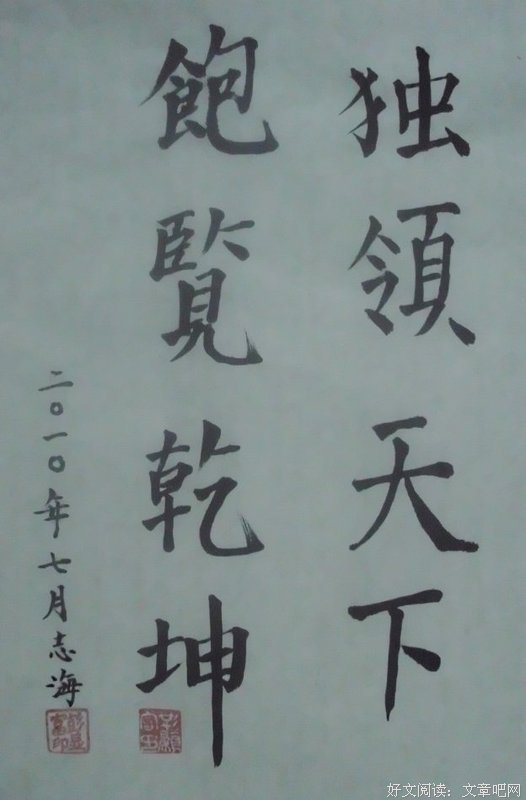 独領天下
飽覽乾坤
二〇一〇年七月志海
好文阅读：文章吧网